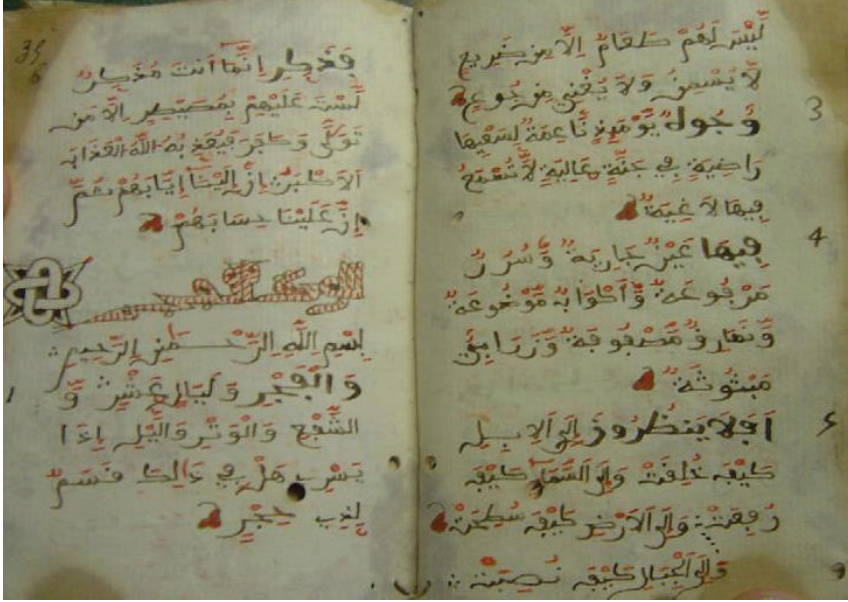 لَّيْسَ لَهُمْ طَعَامٌ اِلَّا مِن ضَرِيعٍ
لَّا يُسْمِنُ وَلَا يُغْنِي مِن جُوعٍ
3
وُجُوهٌ يَوْمَئِذٍ نَّاعِمَةٌ لِّسَعْيِهَا
رَاضِيَةٌ فِي جَنَّةٍ عَالِيَةٍ لَّا تُسْمَعُ
فِيهَا لَاغِيَةٌ
4
فِيهَا عَيْنٌ جَارِيَةٌ وَسُرُرٌ
مَّرْفُوعَةٌ وَّأَكْوَابٌ مَّوْضُوعَةٌ
وَّنَمَارِقُ مَصْفُوفَةٌ وَّزَرَابِيُّ
مَبْثُوثَةٌ
اَفَلَا يَنظُرُونَ إِلَى اَلِابِلِ
كَيْفَ خُلِقَتْ وَإِلَى اَلسَّمَاءِ كَيْفَ
رُفِعَتْ وَإِلَى اَلَارْضِ كَيْفَ سُطِحَتْ
وَإِلَى اَلْجِبَالِ كَيْفَ نُصِبَتْ
35
6
فَذَكِّرِ اِنَّمَا أَنتَ مُذَكِّرٌ
لَّسْتَ عَلَيْهِم بِمُصَيْطِرٍ اِلَّا مَن
تَوَلَّى وَكَفَرَ فَيُعَذِّبُهُ اللَّهُ الْعَذَابَ
اَلَاكْبَرَ إِنَّ إِلَيْنَا إِيَابَهُمْ ثُمَّ
إِنَّ عَلَيْنَا حِسَابَهُمْ
بِسْمِ اللَّهِ الرَّحْمَنِ الرَّحِيمِ
1
وَالْفَجْرِ وَلَيَالٍ عَشْرٍ وَّ
الشَّفْعِ وَالْوَتْرِ وَالَّيْلِ إِذَا
يَسْرِ هَلْ فِي ذَالِكَ قَسَمٌ
لِّذِي حِجْرٍ